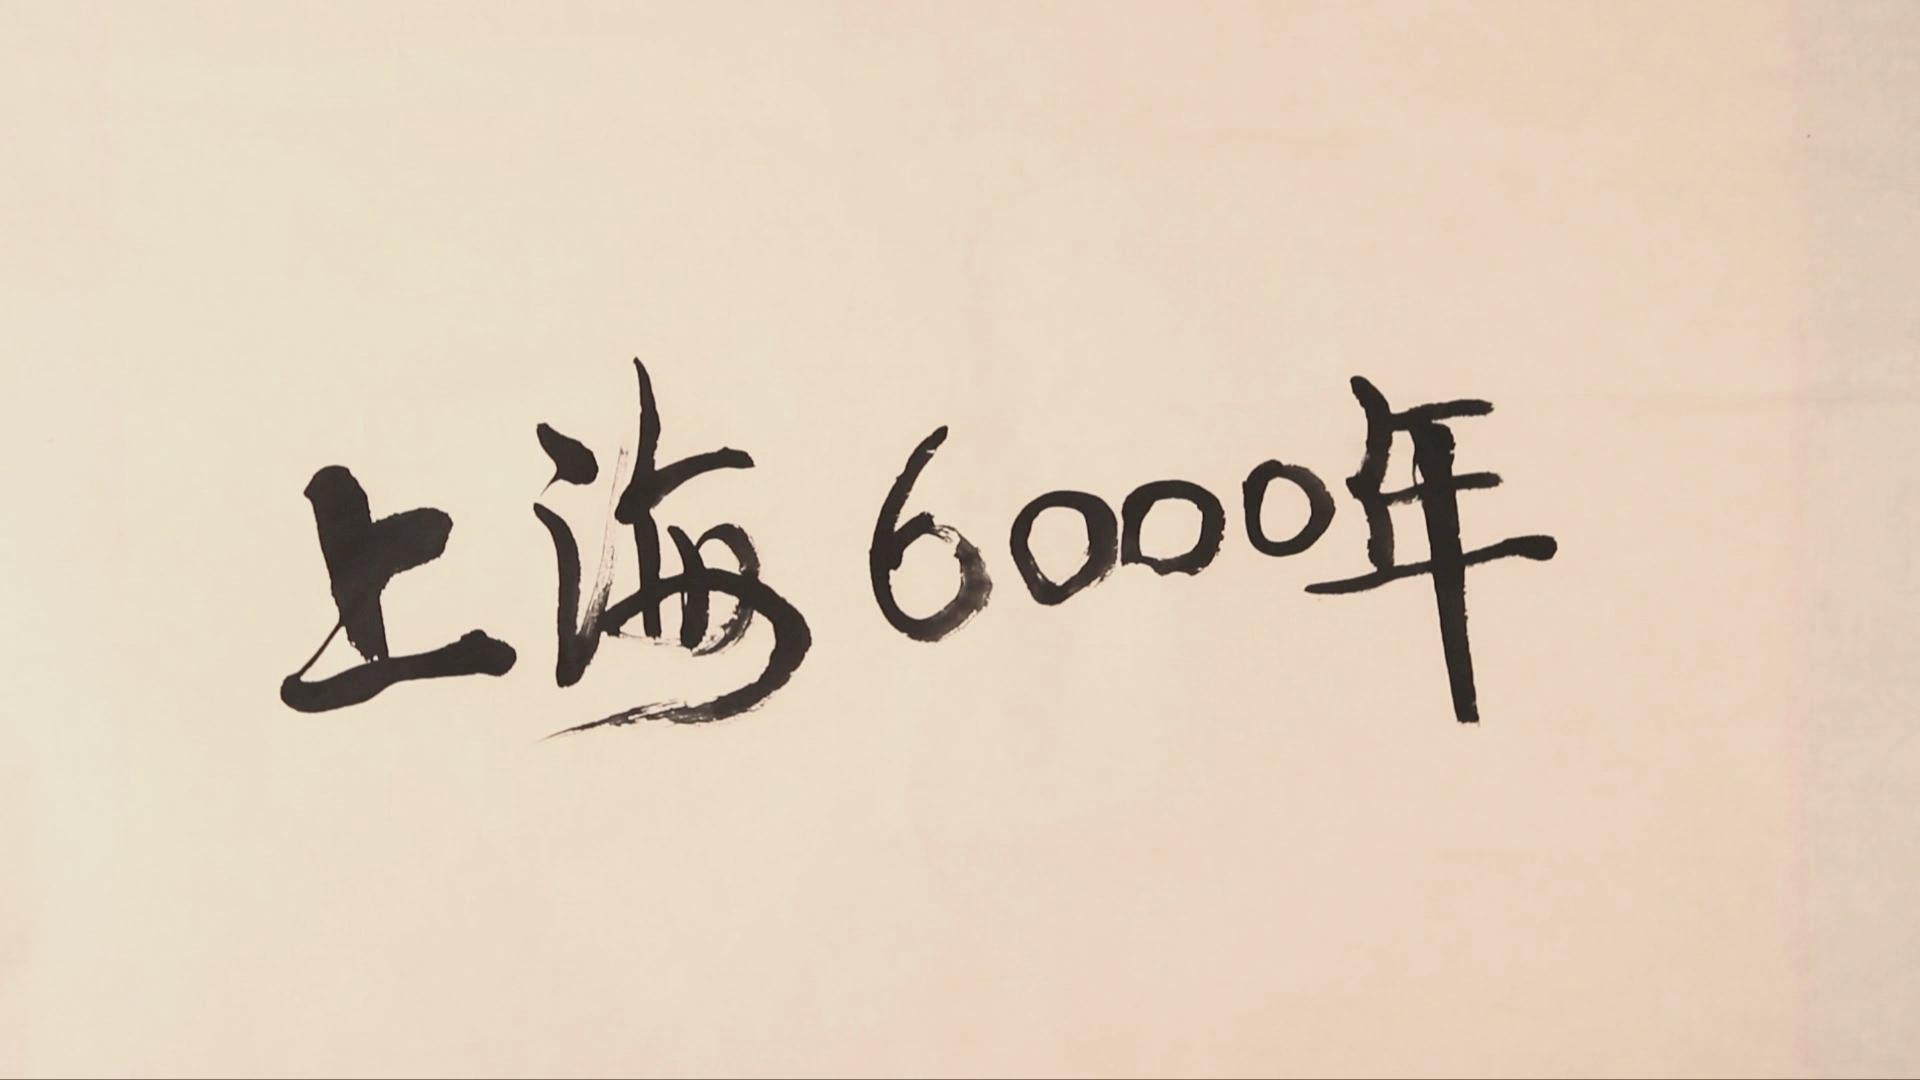 上海6000年